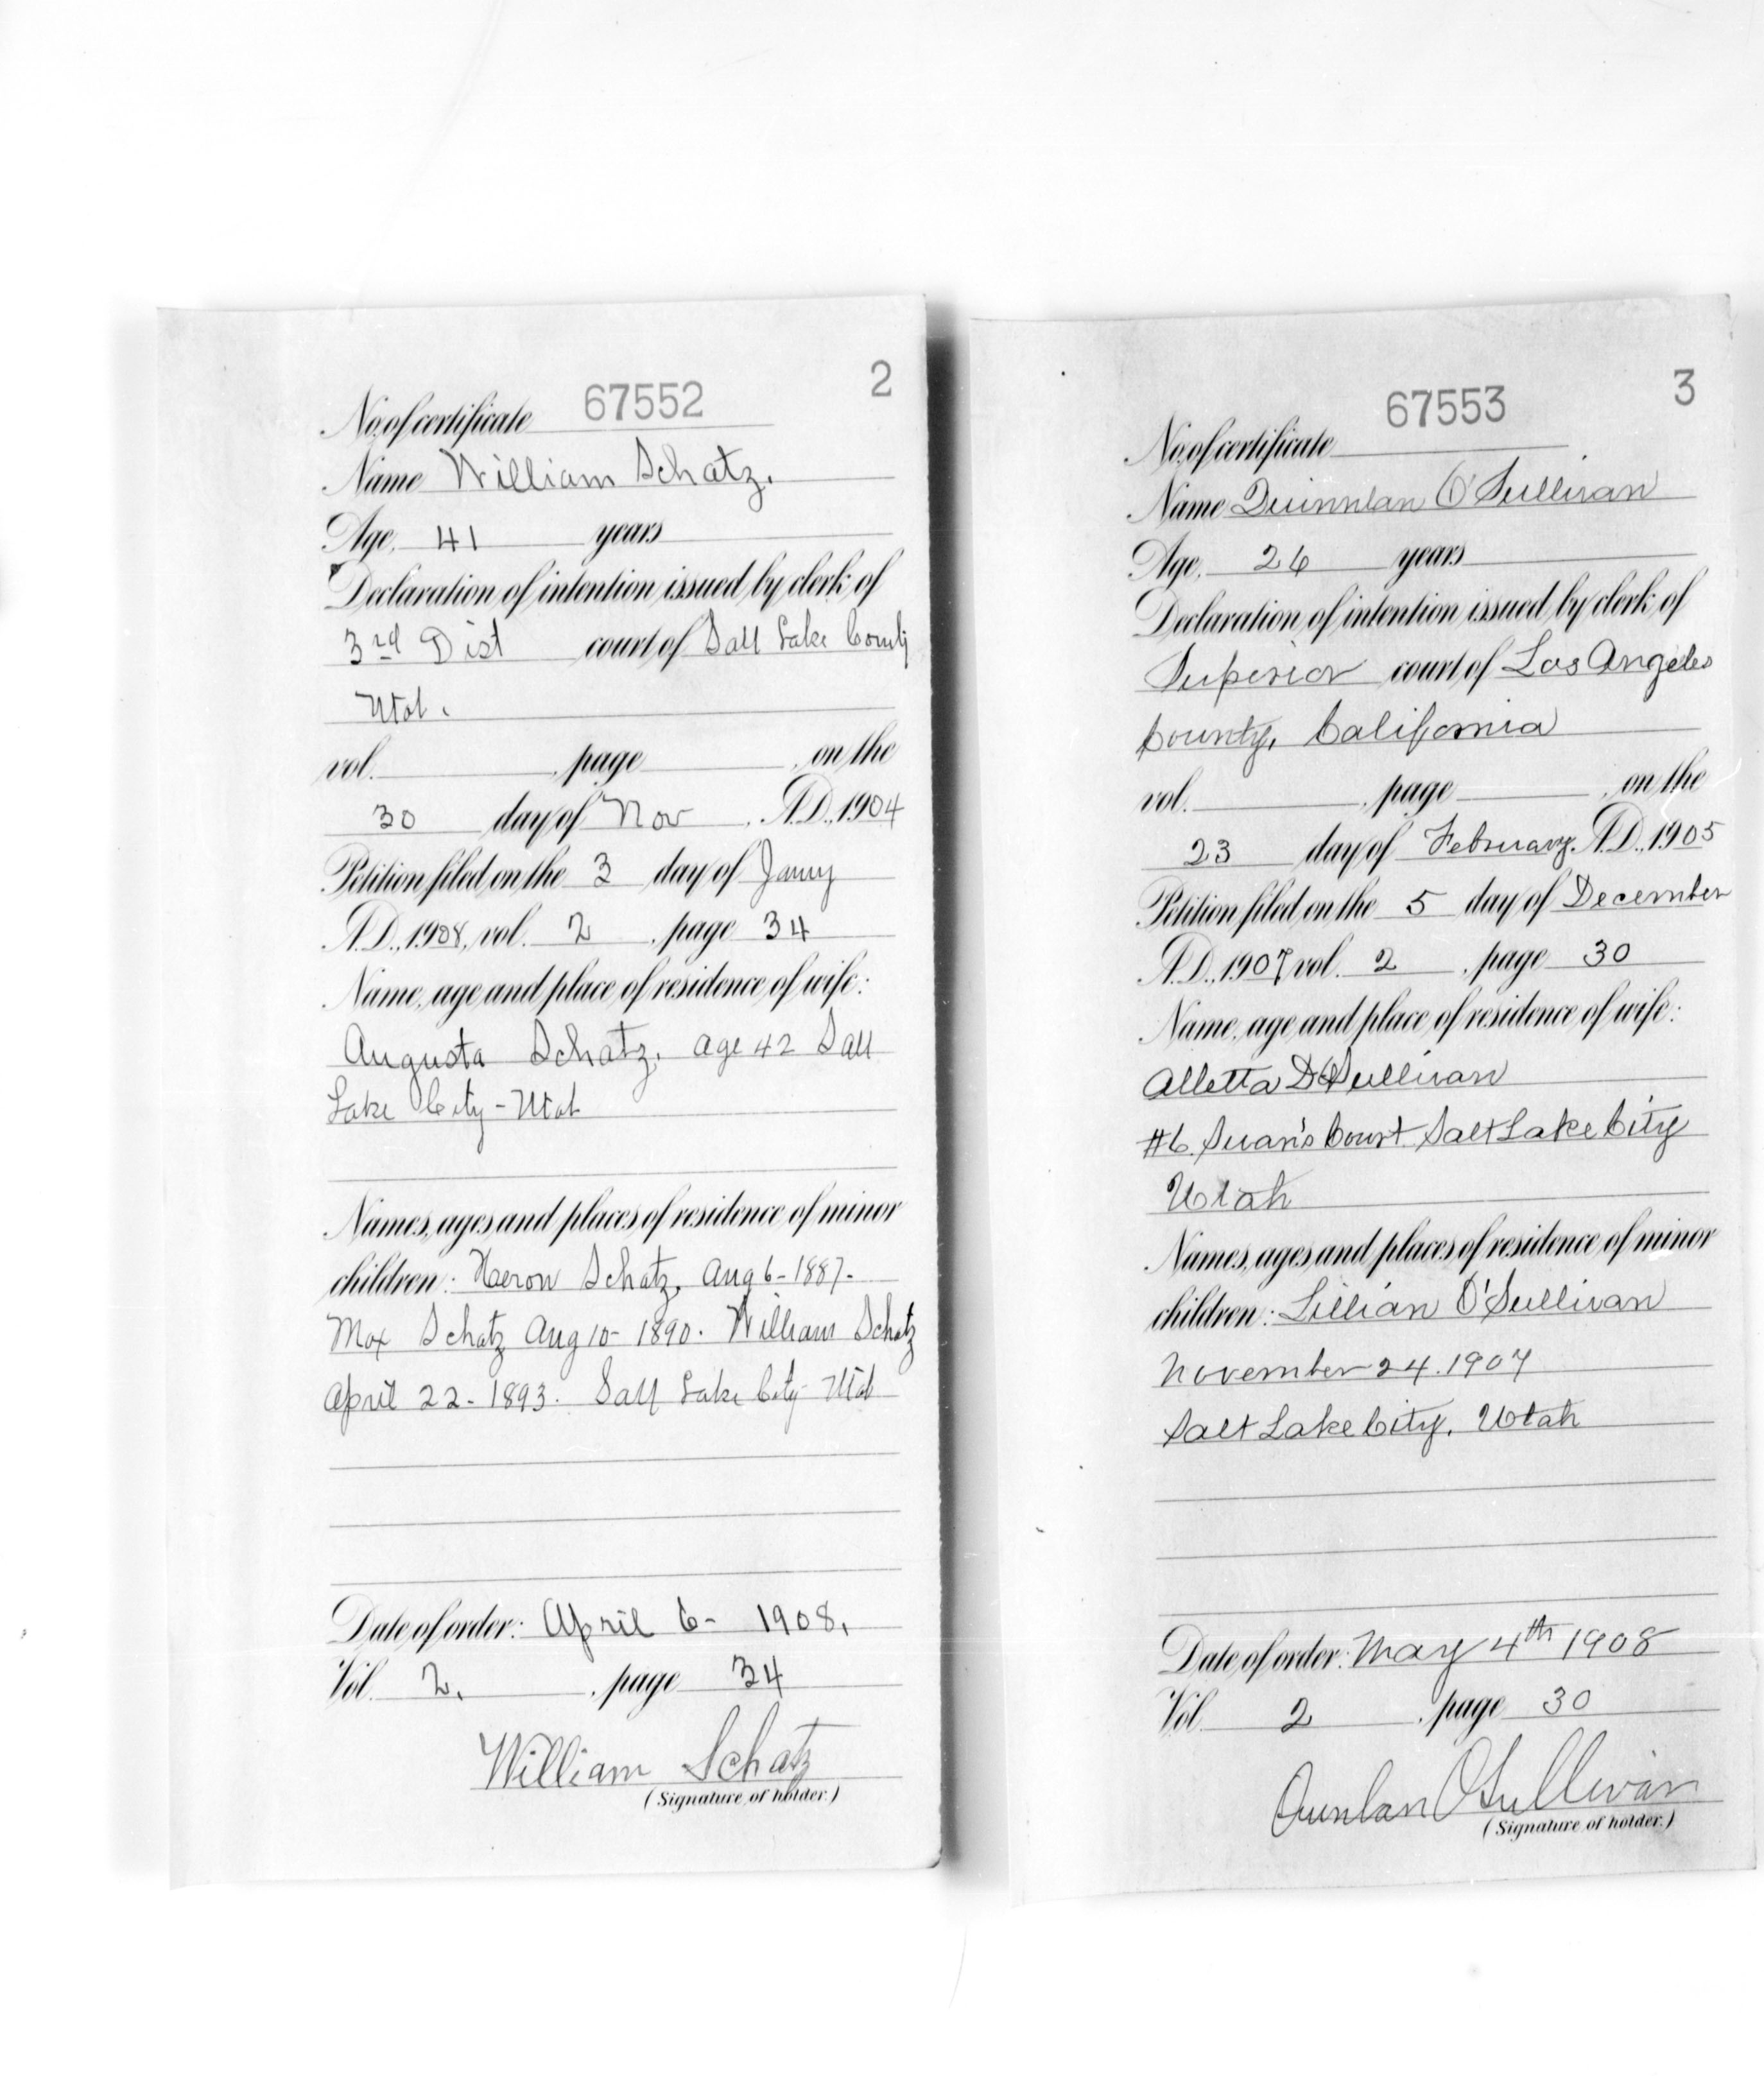 2
No. of certificate 67552
Name William Schatz.
Age, 41 years
Declaration of intention issued by clerk of
3rd Dist court of Salt Lake County
Utah.
vol. , page , on the
30 day of Nov , A.D., 1904
Petition filed on the 3 day of Jany
A.D., 1908, vol. 2 , page 34
Name, age and place of residence of wife:
Augusta Schatz, age 42 Salt
Lake City - Utah
Names, ages and places of residence of minor
children: Schatz, Aug 6 - 1887 -
Max Schatz Aug 10 - 1890. William Schatz
April 22 - 1893. Salt Lake City Utah
Date of order: April 6 - 1908.
Vol. 2. , page 34
William Schatz
(Signature of holder.)
3
No. of certificate 67553
Name Quinnlan O'Sullivan
Age, 26 years
Declaration of intention issued by clerk of
Superior court of Los Angeles
County, California
vol. , page , on the
23 day of February, A.D., 1905
Petition filed on the 5 day of December
A.D., 1907 vol. 2 , page 30
Name, age and place of residence of wife:
Alletta O'Sullivan
#6. Court Salt Lake City
Utah
Names, ages and places of residence of minor
children: Lillian O'Sullivan
November 24. 1907
Salt Lake City, Utah
Date of order: May 4th 1908
Vol. 2 , page 30
Quinlan O'Sullivan
(Signature of holder.)